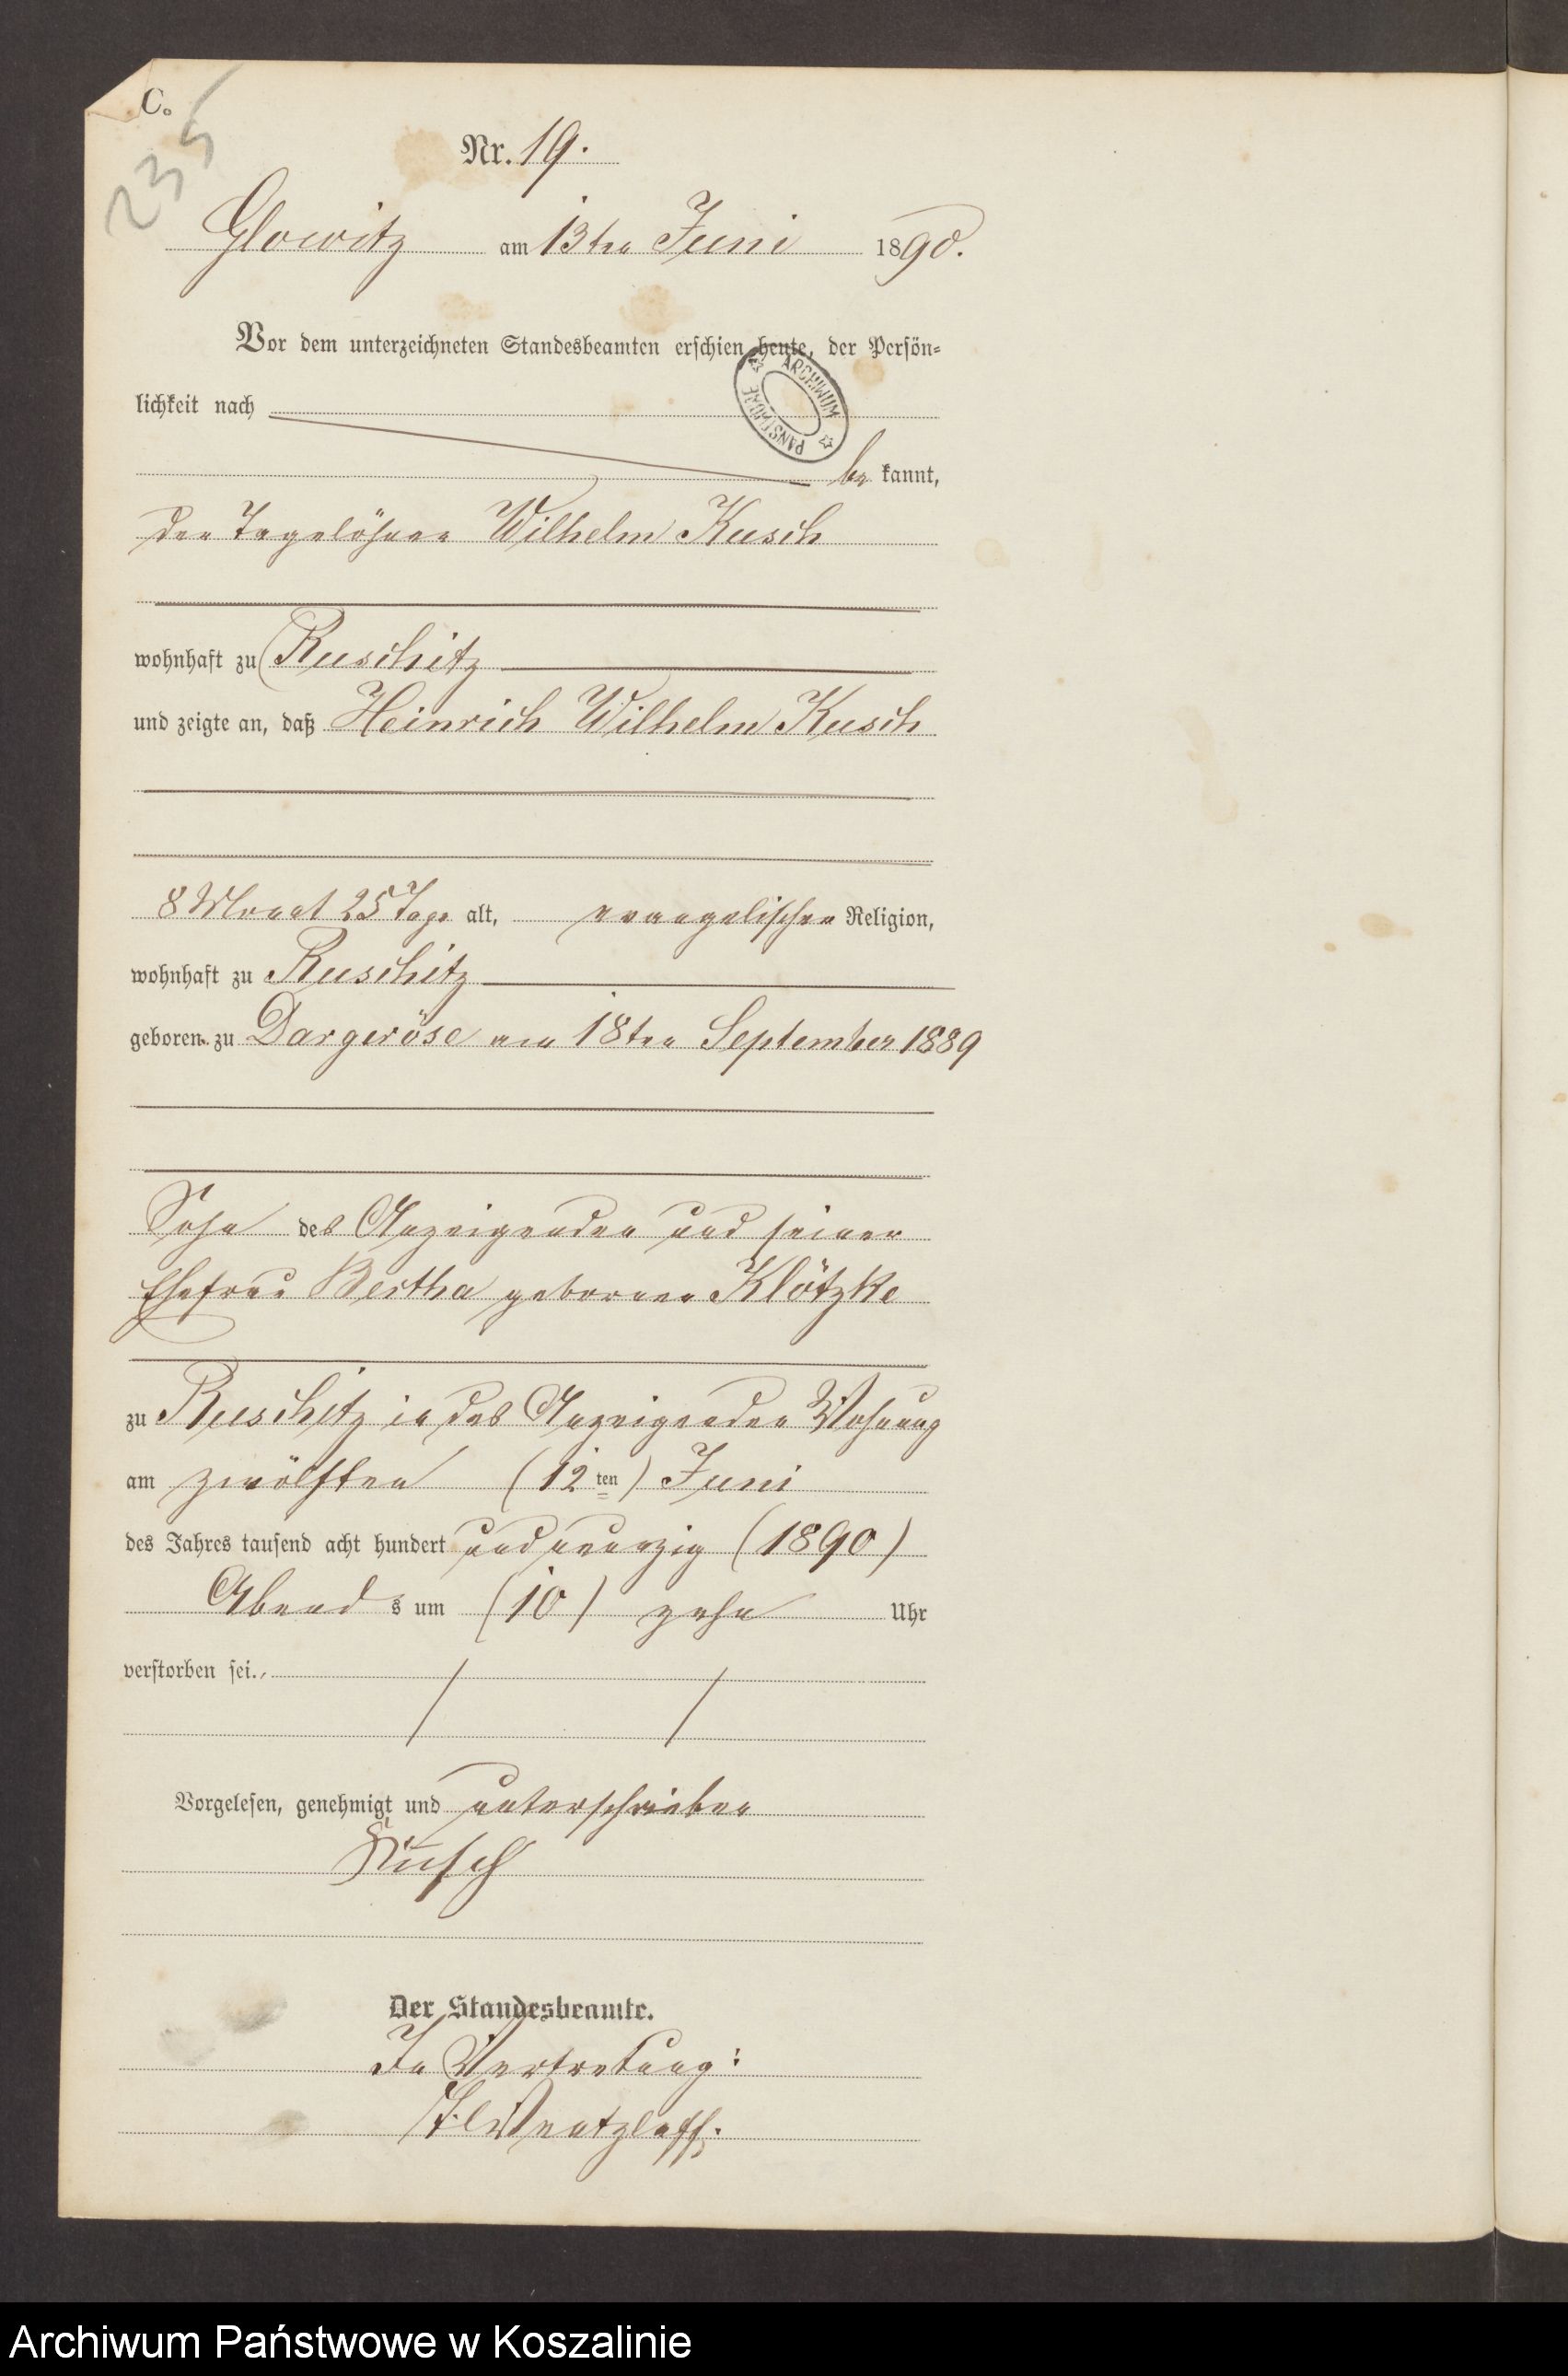 C.
235
Nr. 19.
Glowitz am 13ten Juni 1890.
Vor dem unterzeichneten Standesbeamten erschien heute, der Persön-
lichkeit nach
ARCHIWUM PAŃSTWOWE
be kannt,
der Tagelöhner Wilhelm Kusch
wohnhaft zu Ruschitz
und zeigte an, daß Heinrich Wilhelm Kusch
8 Monat 25 Tage alt, evangelischer Religion,
wohnhaft zu Ruschitz
geboren zu Dargeröse am 18ten September 1889
Sohn des Anzeigenden und seiner
Ehefrau Bertha geborenen Klötzke
zu Ruschitz in des Anzeigenden Wohnung
am zwölften (12ten) Juni
des Jahres tausend acht hundert und neunzig (1890)
Abend s um (10) zehn Uhr
verstorben sei.
Vorgelesen, genehmigt und unterschrieben
Kusch
Der Standesbeamte.
In Vertretung:
Wentzlaff.
Archiwum Państwowe w Koszalinie